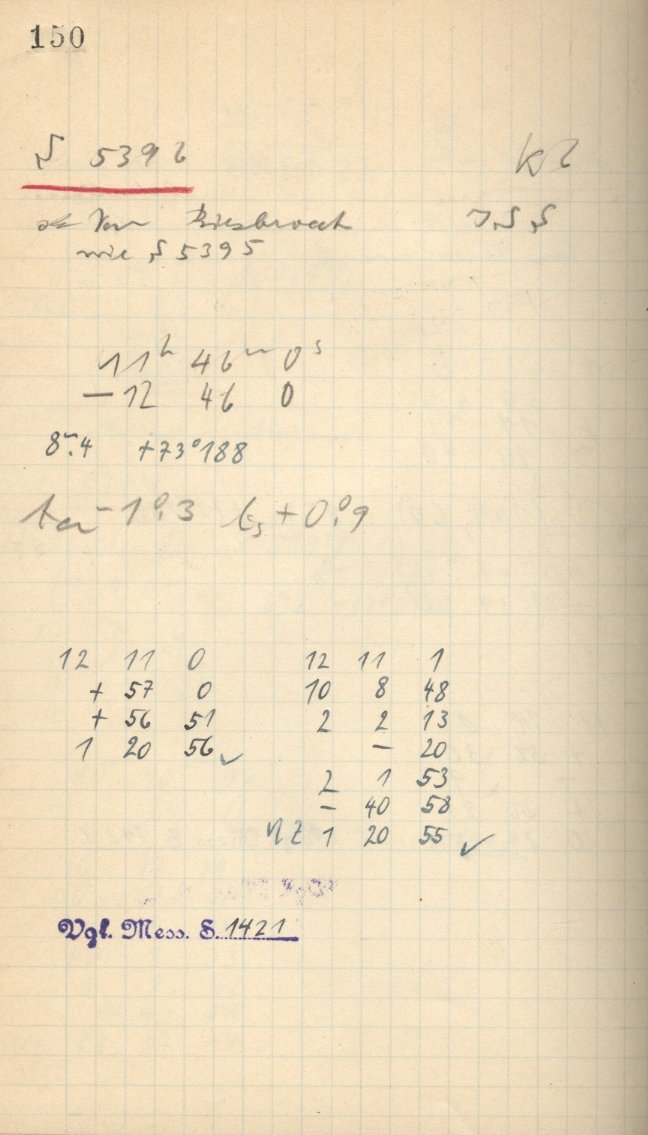 150
S 5396
Van Biesbroeck
wie S 5395
11h 46m 0s
— 12 46 0
8m.4 +73°188
ta -1°.3 ts +0°.9
12 11 0
+ 57 0
+ 56 51
1 20 56 ✓
12 11 1
10 8 48
2 2 13
— 20
2 1 53
— 40 58
1 20 55 ✓
Vgl. Mess. S. 1421